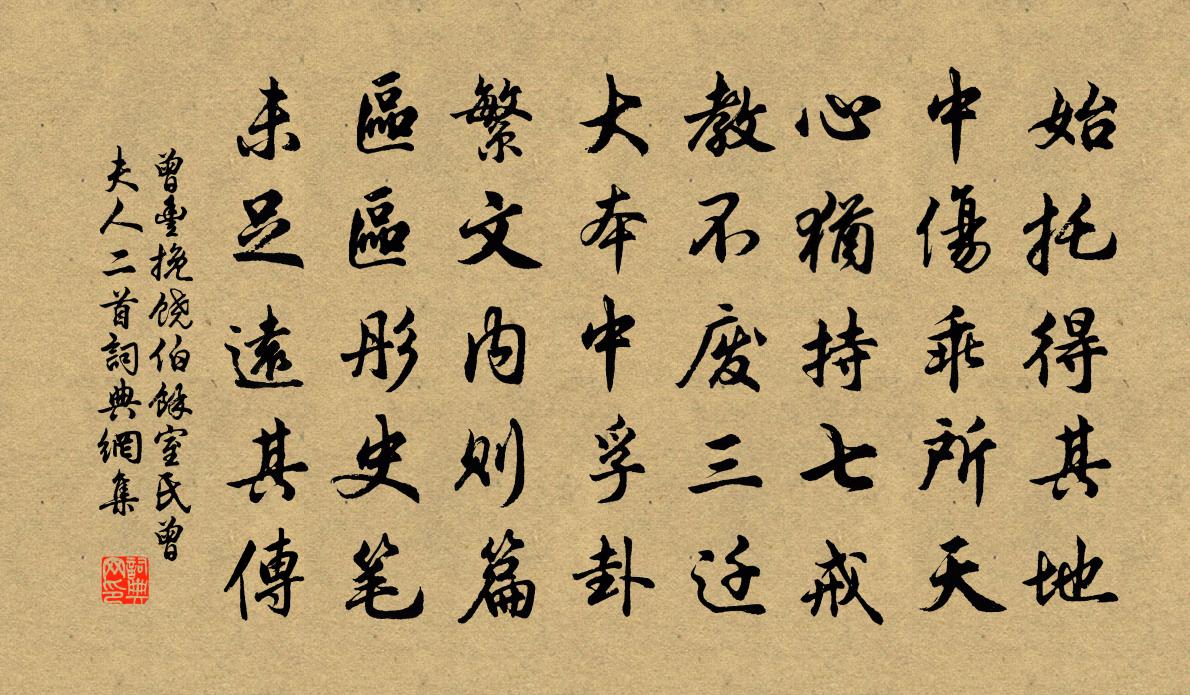 始托得其地
中傷乖所天
心猶持七戒
教不废三迁
大本中孚卦
繁文内则篇
區區彤史笔
未足遠其傳
曾豐挽饶伯餘室氏曾
夫人二首詞典網集
詞典
网印